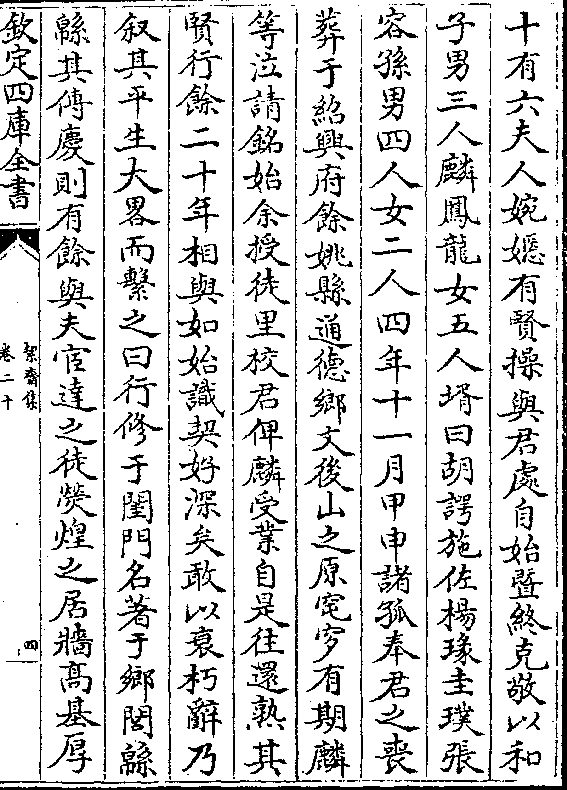 十有六夫人婉嫕有賢操與君處自始暨終克敬以和
子男三人麟鳳龍女五人壻曰胡諤施佐楊瑑圭璞張
容孫男四人女二人四年十一月甲申諸孤奉君之喪
葬于紹興府餘姚縣通德鄉文後山之原窀穸有期麟
等泣請銘始余授徒里校君俾麟受業自是往還熟其
賢行餘二十年相與如始識契好深矣敢以衰朽辭乃
叙其平生大畧而繫之曰行修于閨門名著于鄉閭緜
緜其傳慶則有餘與夫宦達之徒熒煌之居牆高基厚
欽定四庫全書
絜齋集
卷二十
四